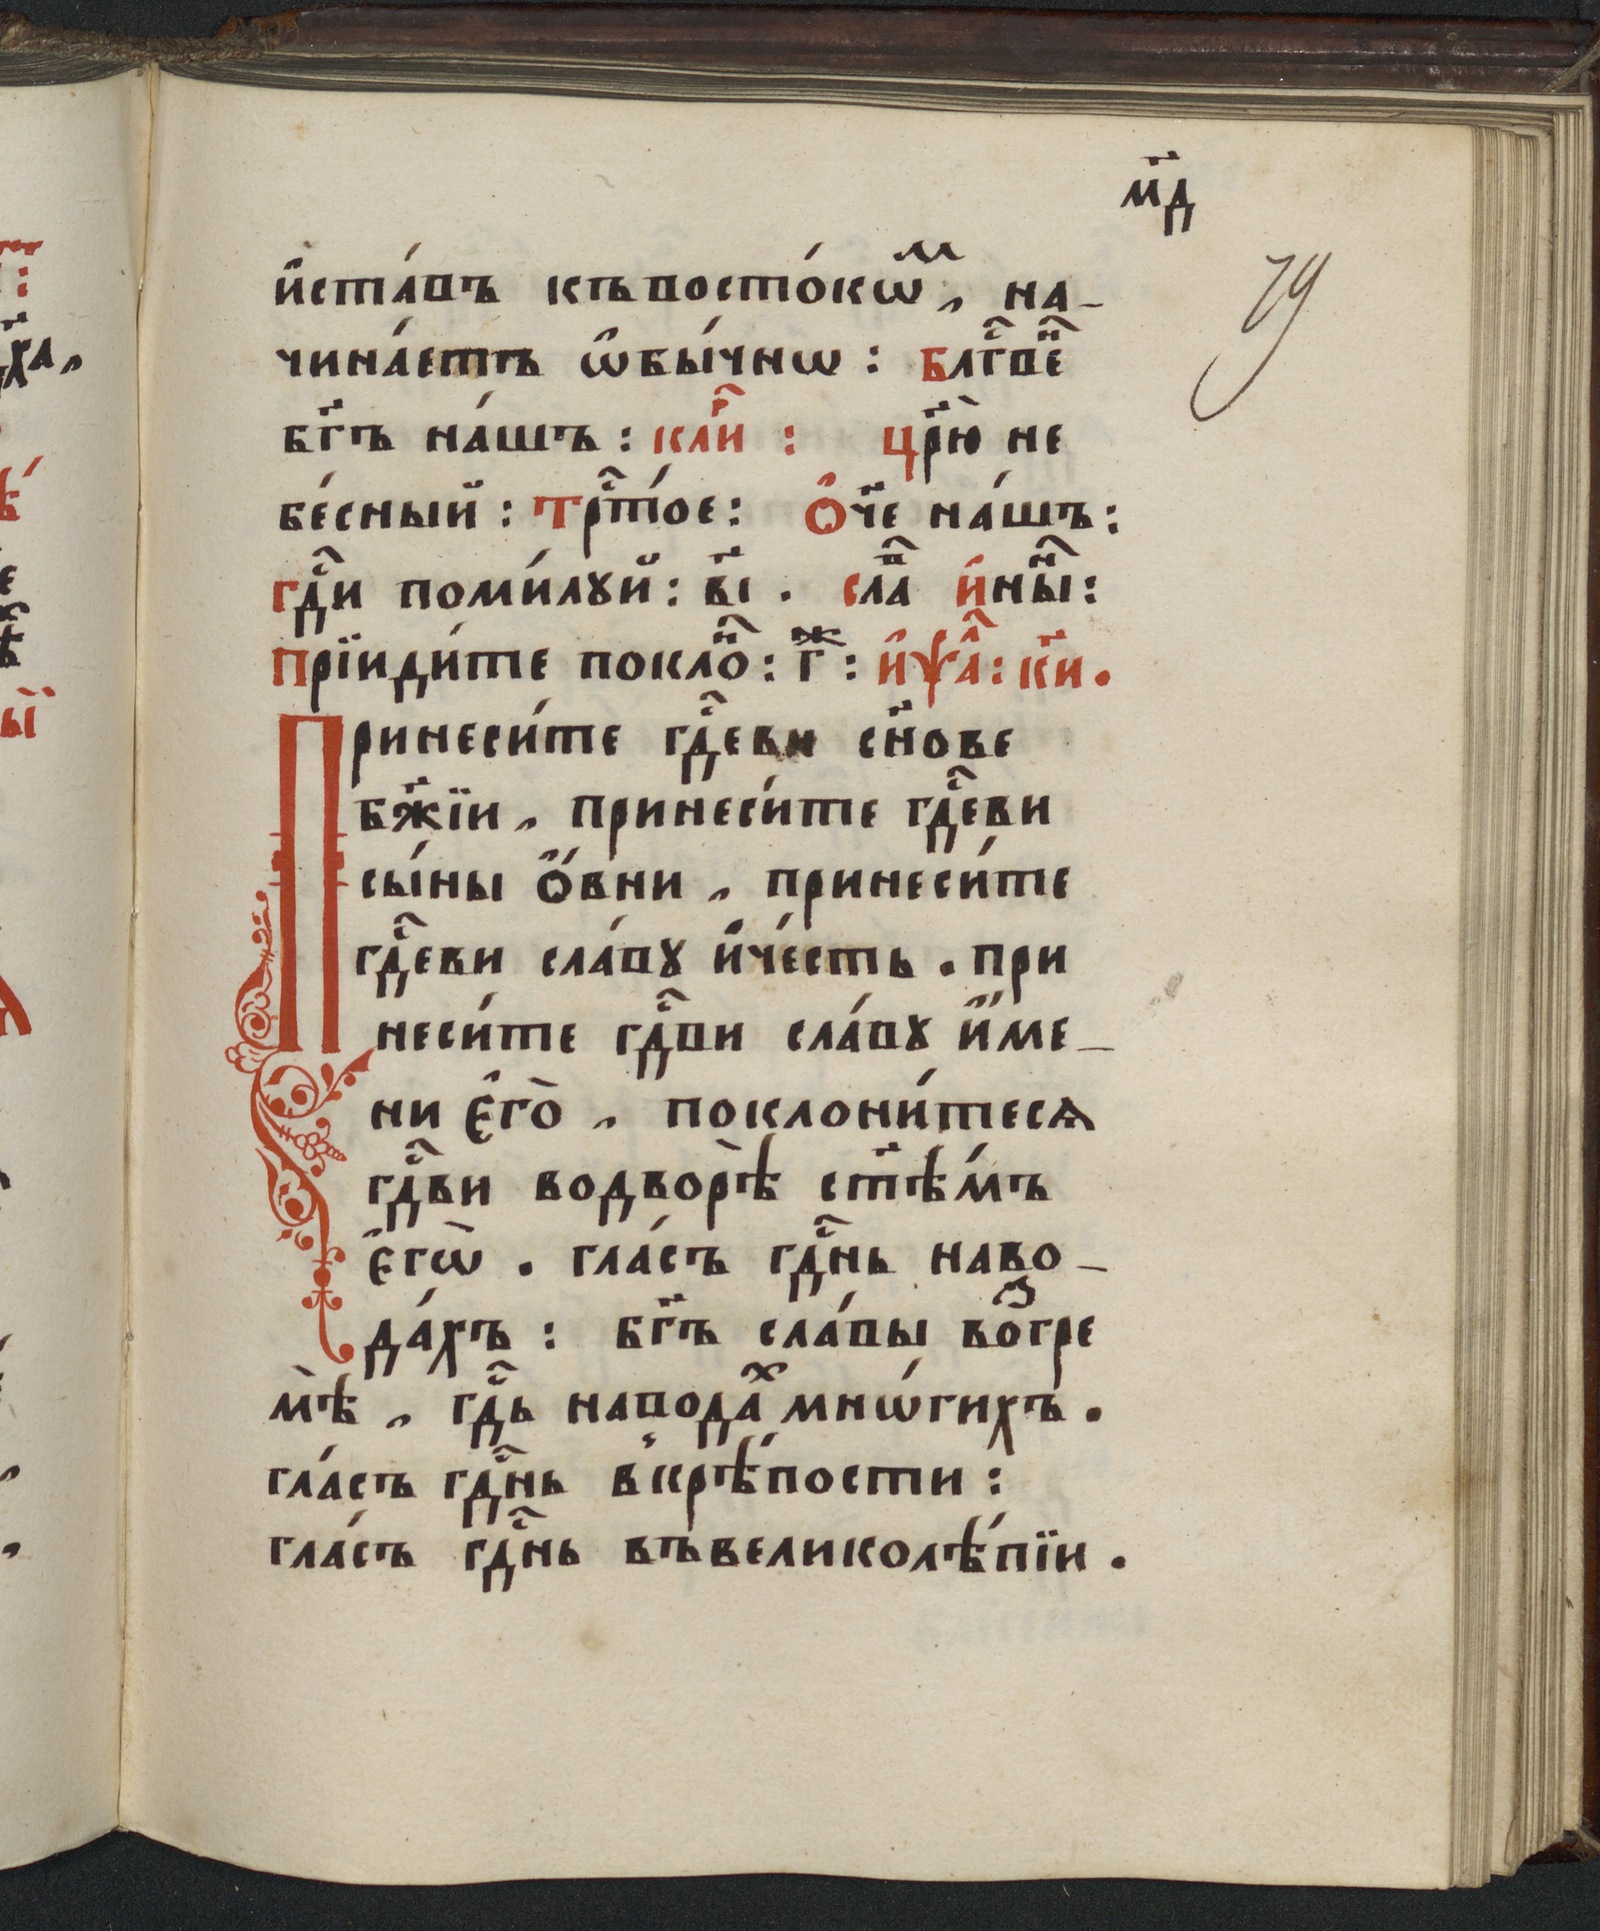 м҃д
79
и҆ста́въ къвосто́кѡⷨ, на-
чина́етъ ѡ҆бы́чнѡ : Блгⷭ҇веⷩ҇
бг҃ъ на́шъ : клиⷬ҇ : Цр҃ю̀ не
бе́сный : Трⷭ҇то́е : Ѻ҆́ч҃е на́шъ :
гдⷭ҇и поми́лꙋй : в҃і . слаⷡ҇ и҆ны́ⷩ҇ :
Прїиди́те поклоⷩ҇ : г҃ⷤ : и҆ѱаⷧ҇ : к҃и .
Принеси́те гдⷭ҇еви сн҃ове
бж҃їи , принеси́те гдⷭ҇еви
сы́ны ѻ҆́вни , принеси́те
гдⷭ҇еви сла́вꙋ и҆че́сть . при
неси́те гдⷭ҇ви сла́вꙋ и҆́ме-
ни є҆гѻ̀ , поклони́тесѧ
гдⷭ҇ви водворѣ̀ ст҃ѣ́мъ
є҆гѡ̀ . гла́съ гдⷭ҇нь наво-
да́хъ : бг҃ъ сла́вы воⷥгре
мѣ̀ , гдⷭ҇ь наводаⷯ мнѡ́гихъ .
гла́съ гдⷭ҇нь в̾крѣ́пости :
гла́съ гдⷭ҇нь въвеликолѣ́пїи .